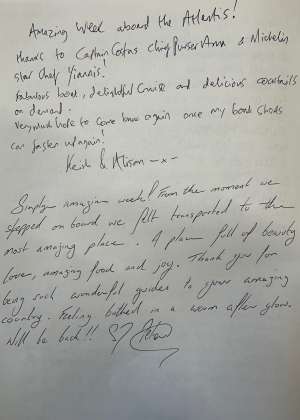 Amazing Week aboard the Atlantis!
Thanks to Captain Costas chief Purser Anna & Michelin
star Chef Yiannis!
Fabulous boat, delightful Cruise and delicious cocktails
on demand.
Very much hope to come back again once my boat shoes
can fasten up again!
Keith & Alison - x -
Simply amazing week! From the moment we
stepped on board we felt transported to the
most amazing place. A place full of beauty
love, amazing food and joy. Thank you for
being such wonderful guides to your amazing
country. Feeling bathed in a warm after glow.
Will be back!! ♡